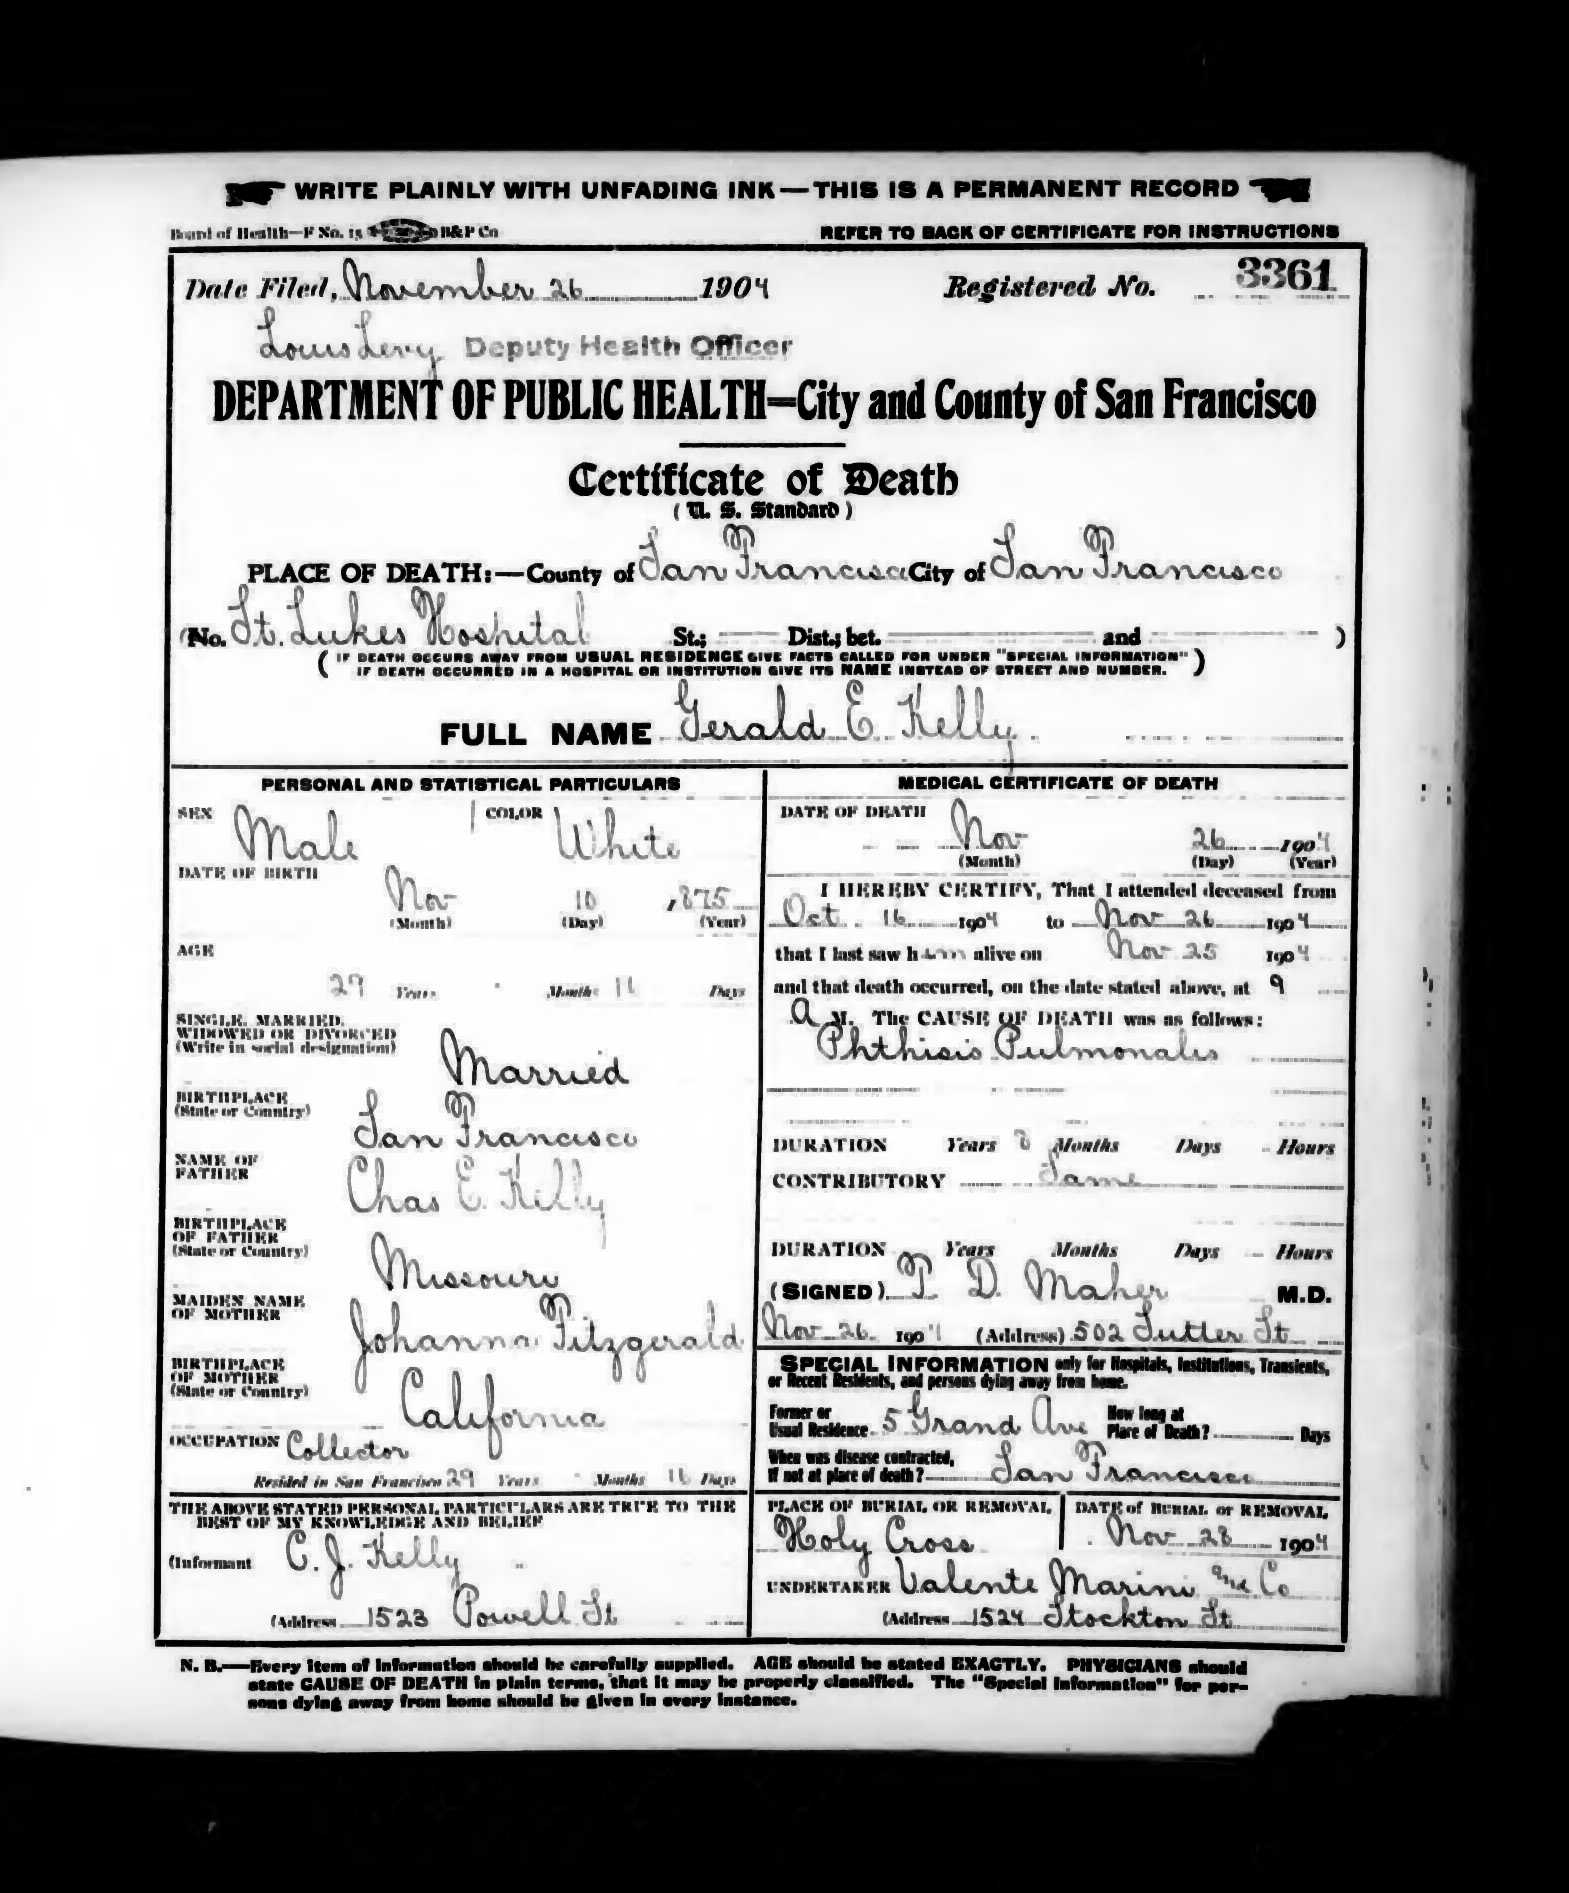 WRITE PLAINLY WITH UNFADING INK—THIS IS A PERMANENT RECORD
Board of Health—F No. 15 B&P Co
REFER TO BACK OF CERTIFICATE FOR INSTRUCTIONS
Date Filed, November 26 1904 Registered No. 3361
Louis Levy Deputy Health Officer
DEPARTMENT OF PUBLIC HEALTH=City and County of San Francisco
Certificate of Death
(U. S. Standard)
PLACE OF DEATH:—County of San Francisco City of San Francisco
(No. St. Lukes Hospital St.; Dist.; bet. and )
(IF DEATH OCCURS AWAY FROM USUAL RESIDENCE GIVE FACTS CALLED FOR UNDER "SPECIAL INFORMATION"
IF DEATH OCCURRED IN A HOSPITAL OR INSTITUTION GIVE ITS NAME INSTEAD OF STREET AND NUMBER.)
FULL NAME Gerald E. Kelly
PERSONAL AND STATISTICAL PARTICULARS
SEX Male COLOR White
DATE OF BIRTH
Nov 10 1875
(Month) (Day) (Year)
AGE
29 Years Months 16 Days
SINGLE, MARRIED,
WIDOWED OR DIVORCED
(Write in social designation)
Married
BIRTHPLACE
(State or Country)
San Francisco
NAME OF
FATHER
Chas E. Kelly
BIRTHPLACE
OF FATHER
(State or Country)
Missouri
MAIDEN NAME
OF MOTHER
Johanna Fitzgerald
BIRTHPLACE
OF MOTHER
(State or Country)
California
OCCUPATION Collector
Resided in San Francisco 29 Years Months 16 Days
THE ABOVE STATED PERSONAL PARTICULARS ARE TRUE TO THE
BEST OF MY KNOWLEDGE AND BELIEF
(Informant C. J. Kelly
(Address 1523 Powell St
MEDICAL CERTIFICATE OF DEATH
DATE OF DEATH
Nov 26 1904
(Month) (Day) (Year)
I HEREBY CERTIFY, That I attended deceased from
Oct 16 1904 to Nov 26 1904
that I last saw him alive on Nov 25 1904
and that death occurred, on the date stated above, at 9
A M. The CAUSE OF DEATH was as follows:
Phthisis Pulmonalis
DURATION Years 8 Months Days Hours
CONTRIBUTORY Same
DURATION Years Months Days Hours
(SIGNED) T. D. Maher M.D.
Nov 26 1904 (Address) 502 Sutter St
SPECIAL INFORMATION only for Hospitals, Institutions, Transients,
or Recent Residents, and persons dying away from home.
Former or
Usual Residence 5 Grand Ave
How long at
Place of Death? Days
When was disease contracted,
If not at place of death? San Francisco
PLACE OF BURIAL OR REMOVAL
Holy Cross
DATE of BURIAL or REMOVAL
Nov 28 1904
UNDERTAKER Valente Marini and Co
(Address 1524 Stockton St
N. B.—Every item of information should be carefully supplied. AGE should be stated EXACTLY. PHYSICIANS should
state CAUSE OF DEATH in plain terms, that it may be properly classified. The "Special Information" for per-
sons dying away from home should be given in every instance.